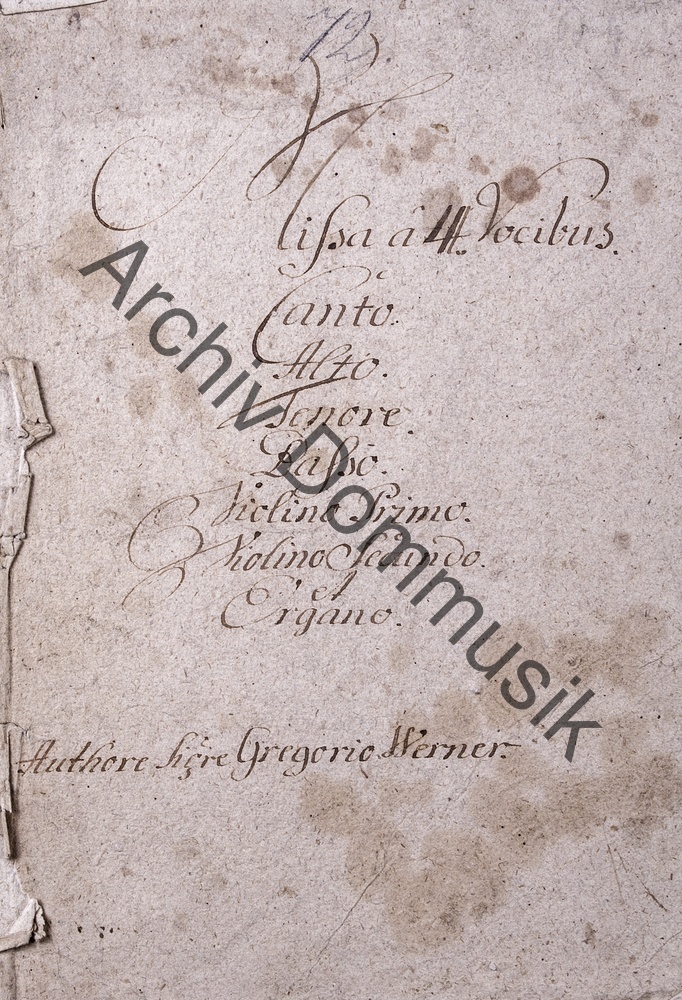 72
Missa â 4. Vocibus.
Canto.
Alto.
Tenore.
Basso.
Violino Primo.
Violino Secundo.
et
Organo.
Authore Sigre Gregorio Werner.
Archiv Dommusik